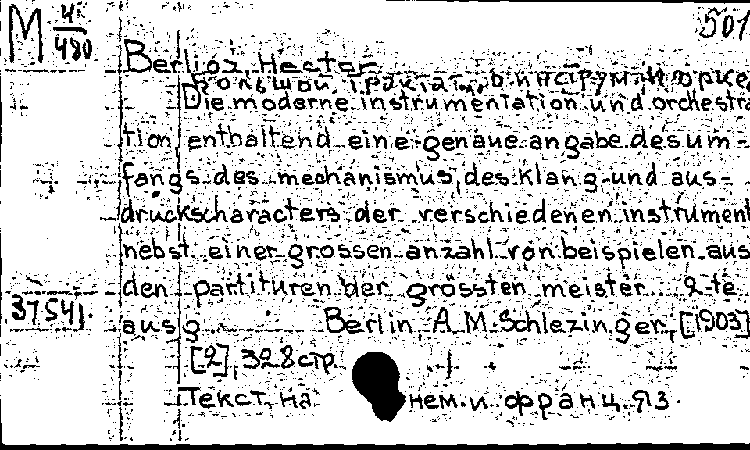 M 4/480
501
Berlioz, Hector
Большой трактат
Die moderne instrumentation und orchestra
tion enthaltend eine genaue angabe des um-
fangs des mechanismus, des klang-und aus-
druckscharacters der verschiedenen instrument
nebst einer grossen anzahl von beispielen aus
den partituren der grössten meister. 2-te
37541.
ausg Berlin, A.M.Schlezinger, [1903]
[2], 328 стр.
Текст на нем. и франц. яз.